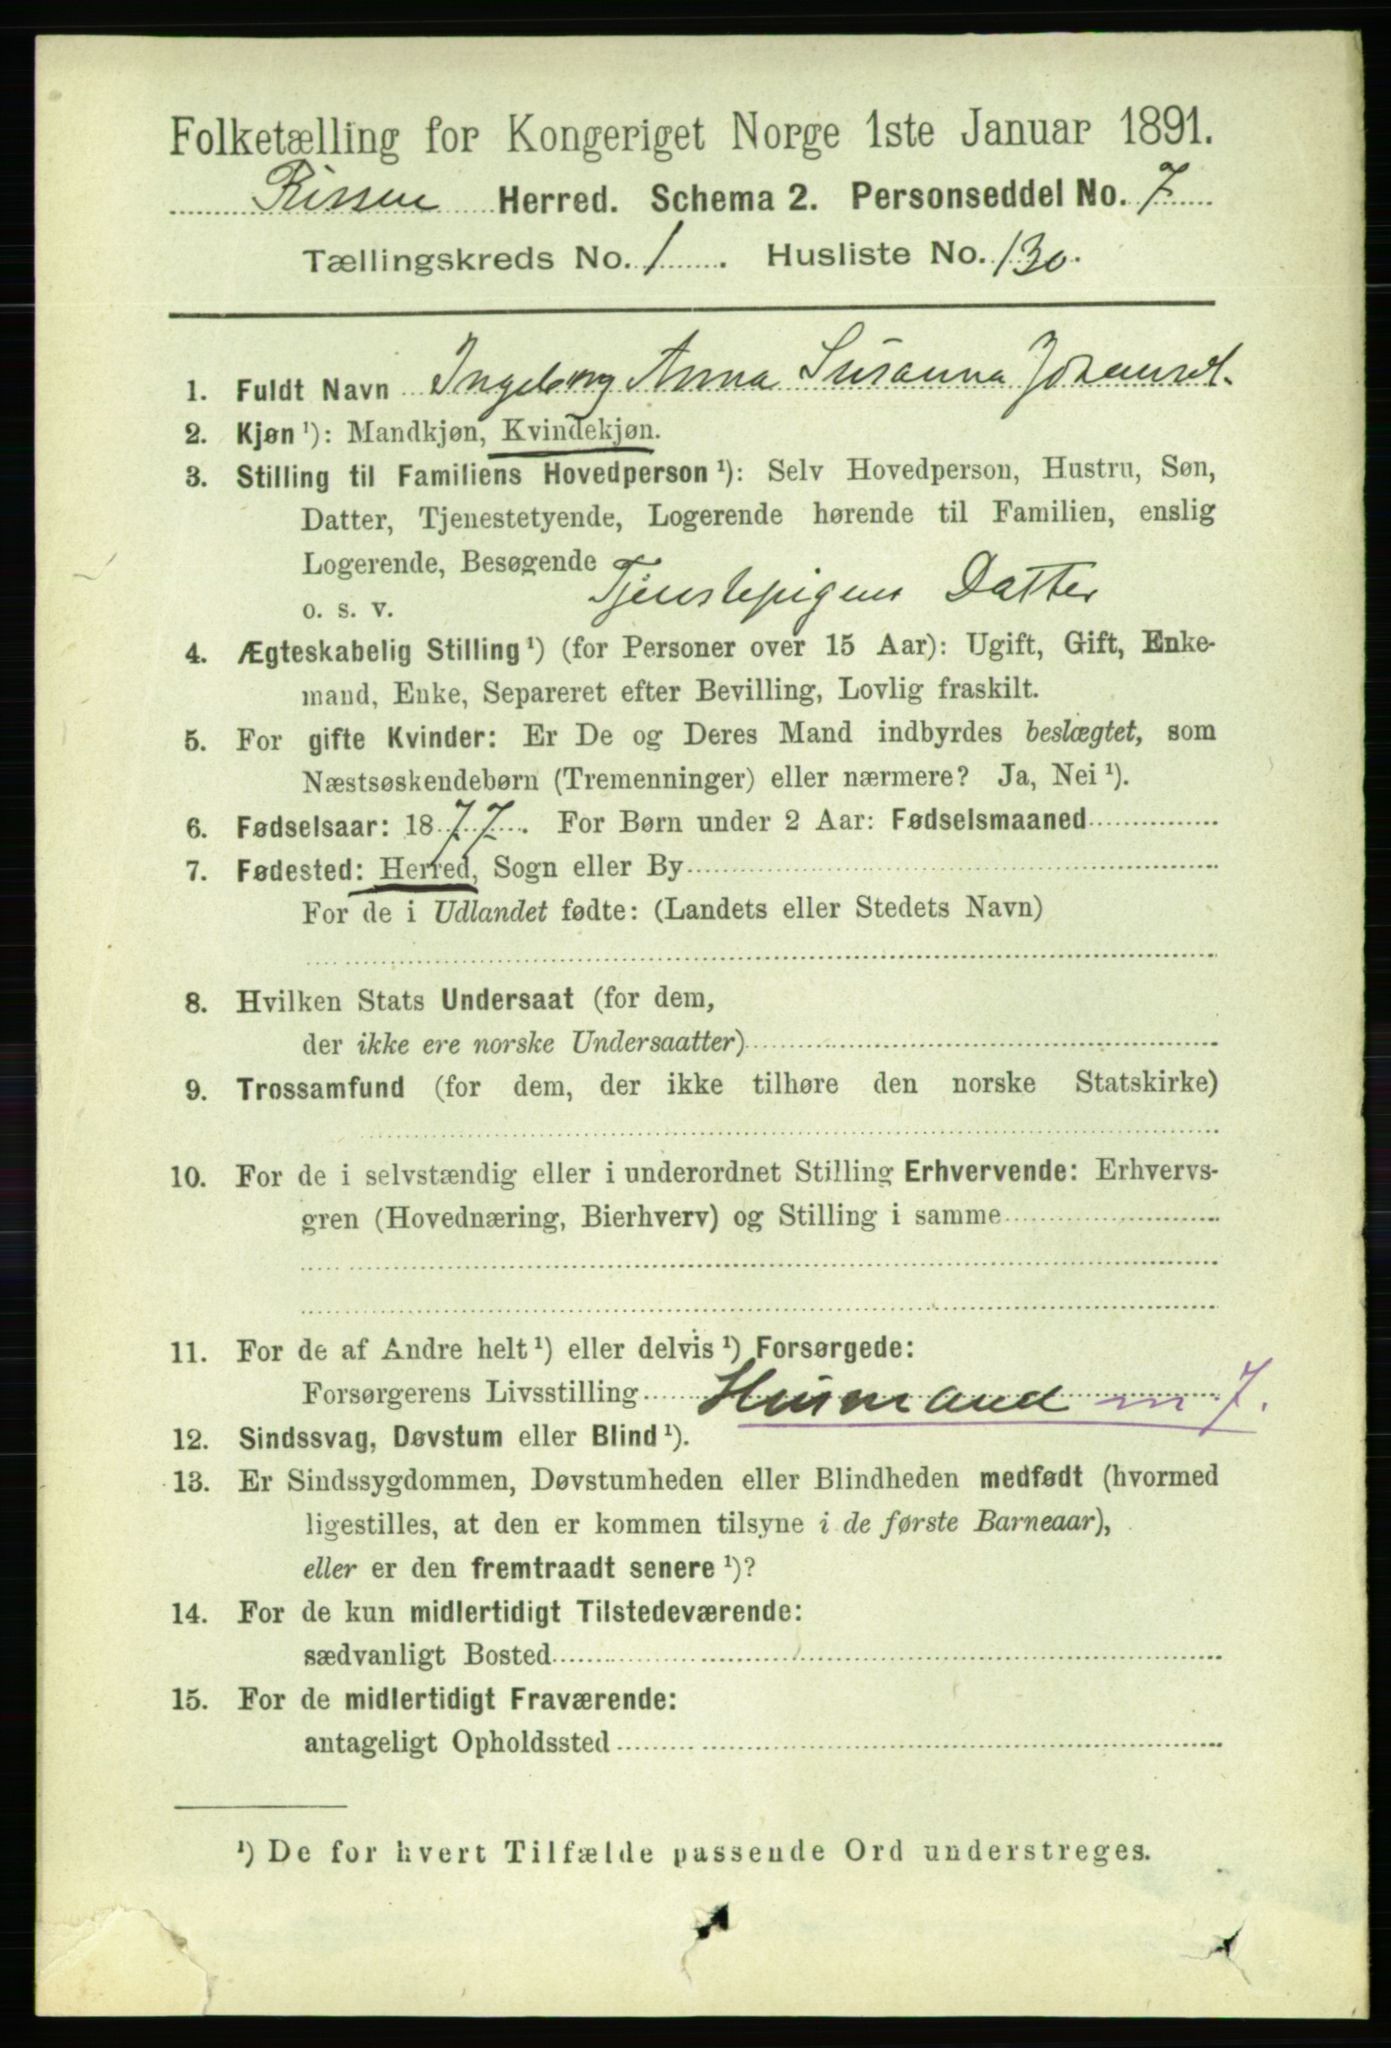 Folketælling for Kongeriget Norge 1ste Januar 1891.
Rissen Herred. Schema 2. Personseddel No. 7
Tællingskreds No. 1. Husliste No. 130.
1. Fuldt Navn Ingeborg Anna Susanna
2. Kjøn ¹): Mandkjøn, Kvindekjøn.
3. Stilling til Familiens Hovedperson ¹): Selv Hovedperson, Hustru, Søn,
Datter, Tjenestetyende, Logerende hørende til Familien, enslig
Logerende, Besøgende
o. s. v. Tjenstepigens Datter
4. Ægteskabelig Stilling ¹) (for Personer over 15 Aar): Ugift, Gift, Enke-
mand, Enke, Separeret efter Bevilling, Lovlig fraskilt.
5. For gifte Kvinder: Er De og Deres Mand indbyrdes beslægtet, som
Næstsøskendebørn (Tremenninger) eller nærmere? Ja, Nei ¹).
6. Fødselsaar: 1877. For Børn under 2 Aar: Fødselsmaaned
7. Fødested: Herred, Sogn eller By
For de i Udlandet fødte: (Landets eller Stedets Navn)
8. Hvilken Stats Undersaat (for dem,
der ikke ere norske Undersaatter)
9. Trossamfund (for dem, der ikke tilhøre den norske Statskirke)
10. For de i selvstændig eller i underordnet Stilling Erhvervende: Erhvervs-
gren (Hovednæring, Bierhverv) og Stilling i samme
11. For de af Andre helt ¹) eller delvis ¹) Forsørgede:
Forsørgerens Livsstilling Husmand m J.
12. Sindssvag, Døvstum eller Blind ¹).
13. Er Sindssygdommen, Døvstumheden eller Blindheden medfødt (hvormed
ligestilles, at den er kommen tilsyne i de første Barneaar),
eller er den fremtraadt senere ¹)?
14. For de kun midlertidigt Tilstedeværende:
sædvanligt Bosted
15. For de midlertidigt Fraværende:
antageligt Opholdssted
¹) De for hvert Tilfælde passende Ord understreges.